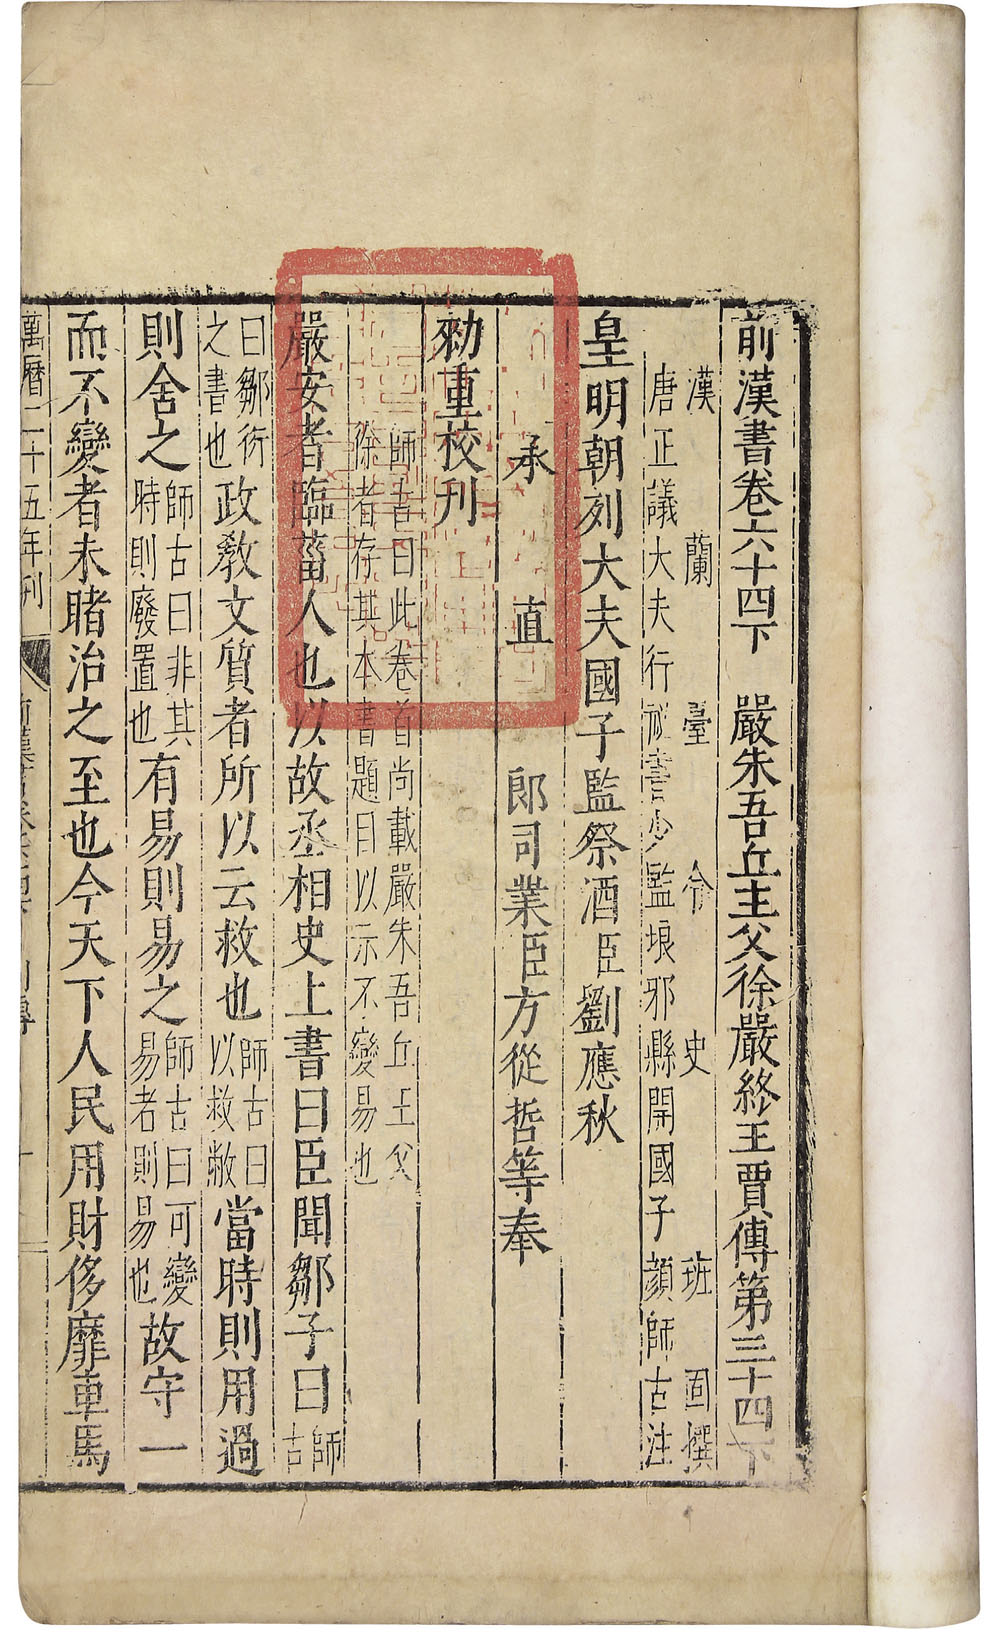 前漢書卷六十四下 嚴朱吾丘主父徐嚴終王賈傳第三十四下
漢 蘭 臺 令 史 班 固 撰
唐正議大夫行祕書少監琅邪縣開國子顏師古注
皇明朝列大夫國子監祭酒臣劉應秋
承 直 郎司業臣方從哲等奉
勑重校刊
師古曰此卷首尚載嚴朱吾丘主父
徐者存其本書題目以示不變易也
嚴安者臨菑人也以故丞相史上書曰臣聞鄒子曰師古
曰鄒衍之書也政教文質者所以云救也師古曰以救敝當時則用過
則舍之師古曰非其時則廢置也有易則易之師古曰可變易者則易也故守一
而不變者未睹治之至也今天下人民用財侈靡車馬
萬曆二十五年刊